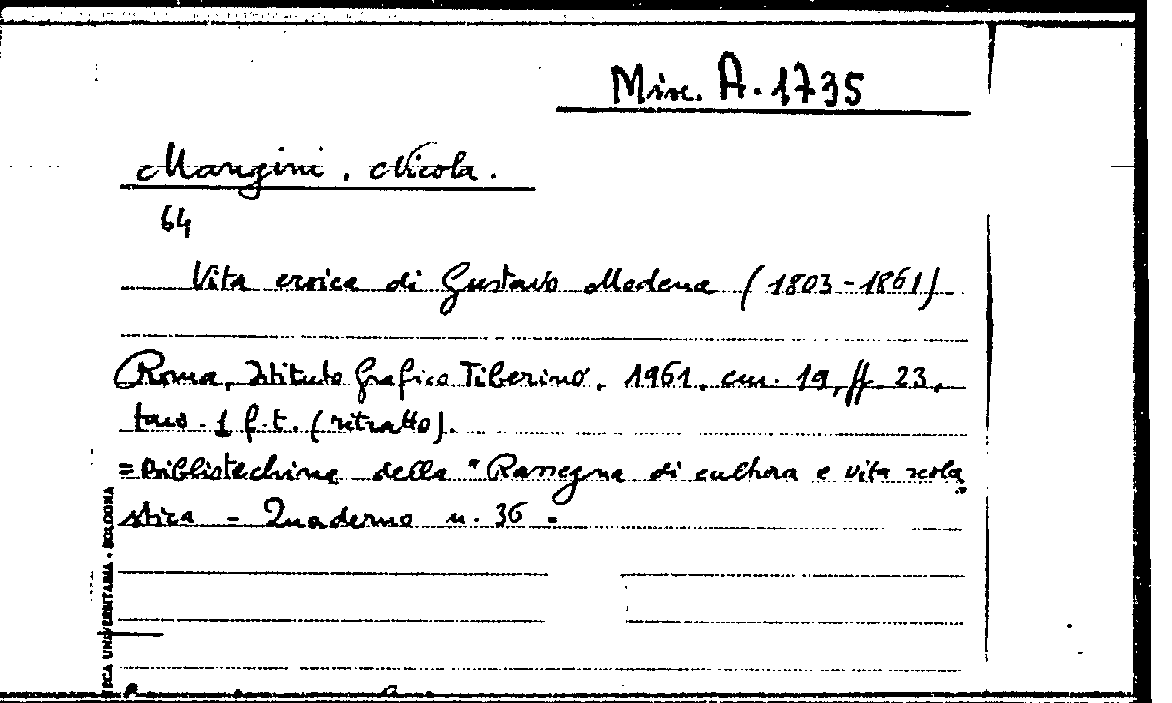 Misc. A. 1735
Mangini, Nicola.
64
Vita eroica di Gustavo Modena (1803-1861)
Roma, Istituto Grafico Tiberino, 1961, cm. 19, ff. 23,
tav. 1 f.t. (ritratto).
=Bibliotechina della "Rassegna di cultura e vita scola
stica" - Quaderno n. 36 =
TECA UNIVERSITARIA - BOLOGNA